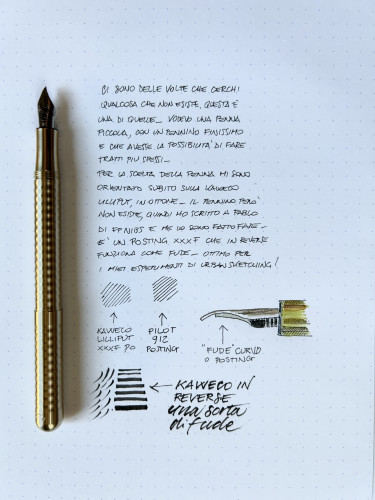 CI SONO DELLE VOLTE CHE CERCHI
QUALCOSA CHE NON ESISTE, QUESTA È
UNA DI QUELLE_ VOLEVO UNA PENNA
PICCOLA, CON UN PENNINO FINISSIMO
E CHE AVESSE LA POSSIBILITA' DI FARE
TRATTI PIU SPESSI_
PER LA SCELTA DELLA PENNA MI SONO
ORIENTATO SUBITO SULLA KAWECO
LILLIPUT, IN OTTONE_ IL PENNINO PERO'
NON ESISTE, QUINDI HO SCRITTO A PABLO
DI FPNIBS E ME LO SONO FATTO FARE_
E' UN POSTING XXXF CHE IN REVERSE
FUNZIONA COME FUDE_ OTTIMO PER
I MIEI ESPERIMENTI DI URBAN SKETCHING!
KAWECO
LILLIPUT
XXXF PO
PILOT
912
POSTING
"FUDE" CURVO
O POSTING
KAWECO IN
REVERSE
una sorta
di fude